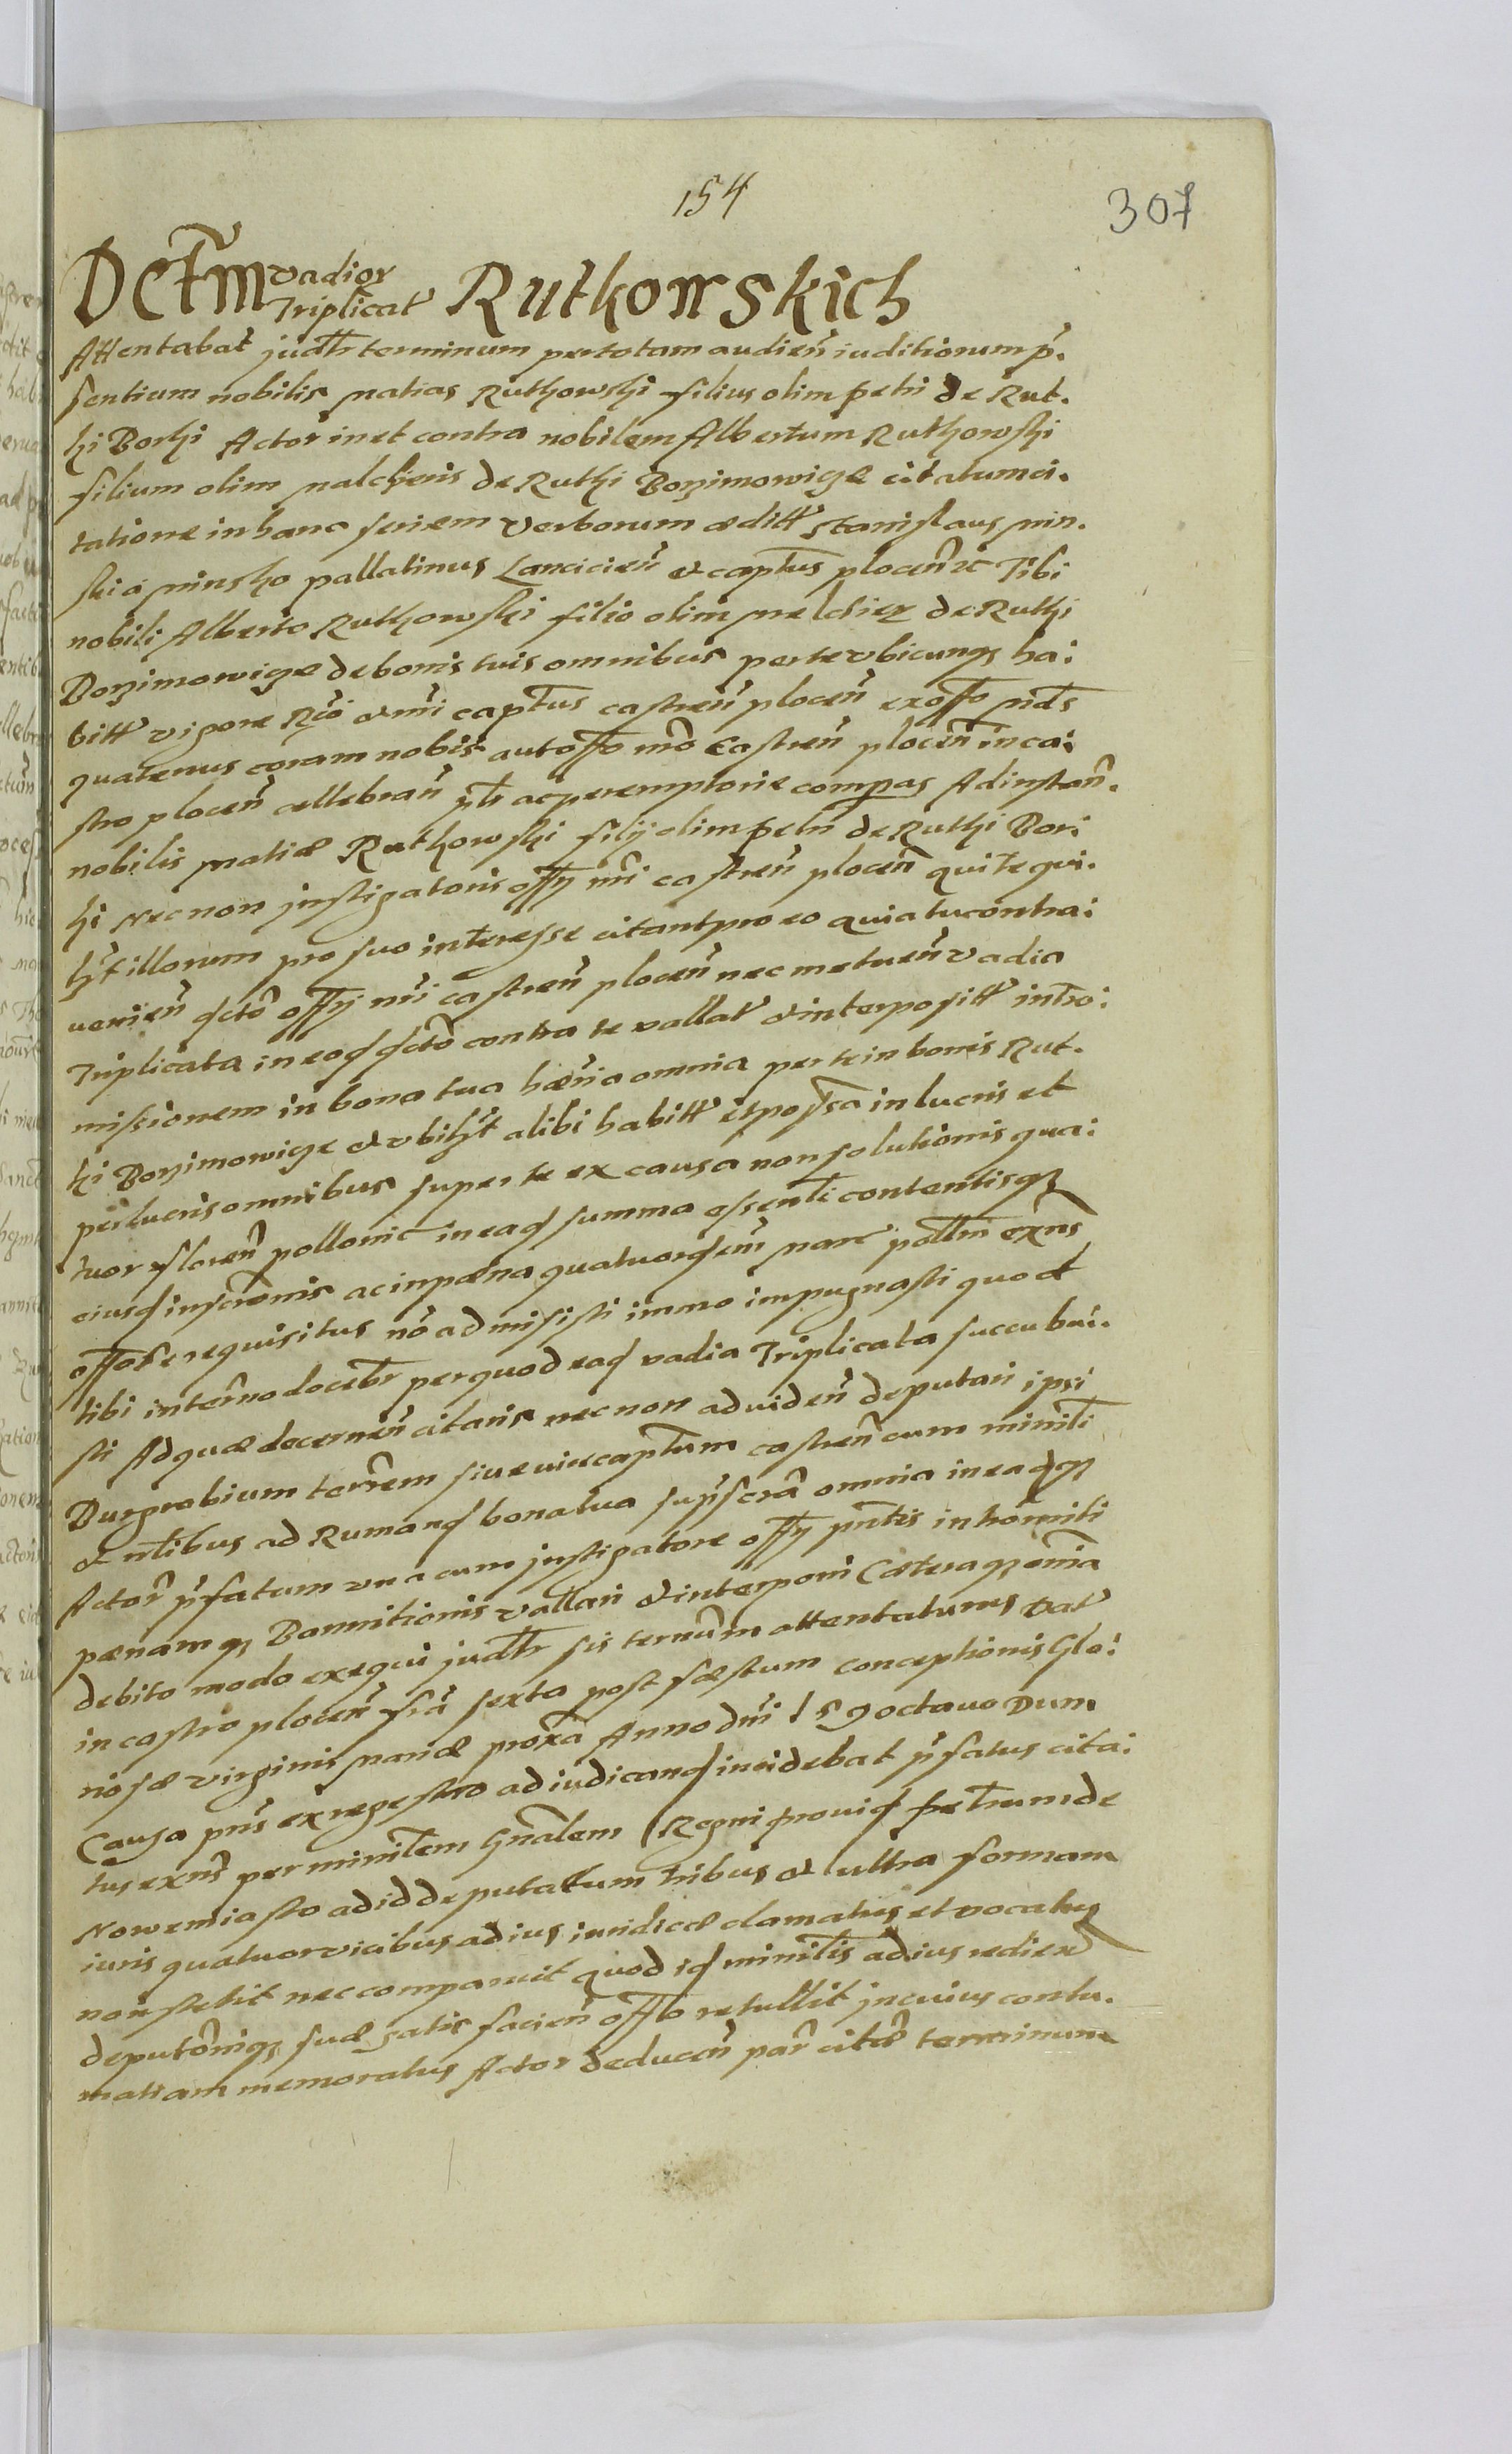 154
307
Dctm̃ vadior Triplicat Rutkowskich
Attentabat judtr terminum per totam audien̄ iuditiorum p̄.
sentium nobilis Matias Ruthowski filius olim Petri de Rut.
ki Borki Actor in et contra nobilem Albertum Ruthowski
filium olim Malcheris de Ruthi Bozimowięże citatum ci.
tatione in hanc seriem verborum æditt Stanislaus Min.
ski á Minsko pallatinus Lancicien̄ et captus plocen̄ etc Tibi
nobili Alberto Ruthowski filio olim Melchier de Ruthi
Bozimowięże de bonis tuis omnibus per te vbicunq3 ha:
bitt vigore Rt̄o et nr̄i captus castren̄ plocen̄ ex offo mds
quatenus coram nobis aut offo nr̄o castren̄ plocen̄ in ca:
stro plocen̄ cellebran̄ ptr ac peremptorie compas Ad instan̄.
nobilis Matiæ Ruthowski filij olim Petri de Ruthi Bor:
ki Nec non justigatoris offy nr̄i castren̄ plocen̄ qui te qui.
lzt illorum pro suo interesse citant pro eo quia tu contra:
uenien̄ dcto offy nr̄i castren̄ plocen̄ nec metuen̄ vadia
Triplicata in eod dcto contra te vallat et interpositt intro:
missionem in bona tua hæn̄ia omnia per te in bonis Rut.
ki Bozimowięże et vbilzt alibi habitt et possa in lucris et
perlucris omnibus super te ex causa non solutionis qua:
tuor floren̄ pollonic in ead summa essenti contentisq3
eiusd inscronis ac in pæna quatuordcim marc pollm exn̄s
offose requisitus nō admisisti immo impugnasti quod et
tibi in termo docebr per quod ead vadia Triplicata succubui.
sti Ad quæ decernen̄ citaris nec non ad viden̄ deputari ipsi
Burgrabium terrem siue vicecaptum castren̄ cum ministi
et nlibus ad Rumand bona tua supscra omnia in eadq3
Actor p̄fatum vna cum justigatore offy pn̄tis introm̄iti
pænamq3 Bannitionis vallari et interponi Cæteraq3 omnia
debito modo exequi judtr sis termum attentaturus Dat
in castro plocen̄ fr̄a sexta post fæstum conceptionis Glo:
riosæ virginis Mariæ prox̄a Anno dn̄i 159 octauo Dum
Causa pn̄s ex regestro ad iudicand incidebat p̄fatus cita:
tus exn̄s per ministem Gn̄alem Regni prouid Petrum de
Nowemiasto ad id deputatum tribus et ultra formam
iuris quatuor vicibus ad ius iuridice clamatus et vocatus
non stetit nec comparuit quod id ministis ad ius rediens
deputōniq3 suæ satis facien̄ offo retullit in cuius contu.
matiam memoratus Actor deducen̄ par citæ terminum